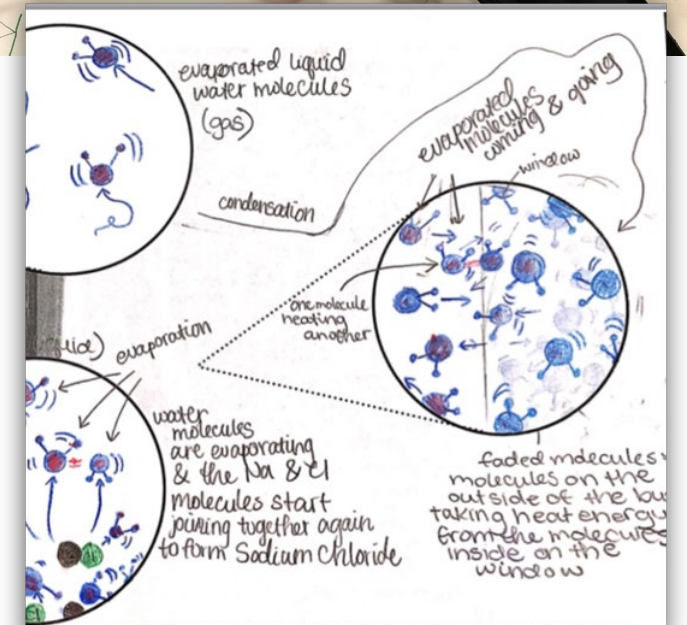 evaporated liquid
water molecules
(gas)
evaporated
molecules
coming & going
window
condensation
one molecule
heating
another
evaporation
water
molecules
are evaporating
& the Na & Cl
molecules start
joining together again
to form Sodium Chloride
faded molecules
molecules on the
outside of the
taking heat energy
from the molecules
inside on the
window